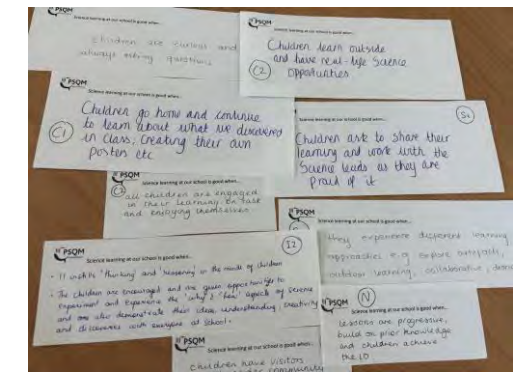 PSQM
Science learning at our school is good when...
children are curious and
always asking questions
PSQM
Science learning at our school is good when...
Children learn outside
and have real-life science
opportunities
C2
PSQM
Science learning at our school is good when...
Children go home and continue
to learn about what we discovered
in class; creating their own
posters etc
C1
PSQM
Science learning at our school is good when...
Children ask to share their
learning and work with the
Science leads as they are
proud of it
PSQM
Science learning at our school is good when...
all children are engaged
in their learning, on task
and enjoying themselves
Science learning at our school is good when...
they experience different learning
approaches e.g. explore artefacts,
outdoor learning, collaborative,
PSQM
Science learning at our school is good when...
I2
• It instils 'thinking' and 'reasoning' in the minds of children
• The children are encouraged and are given opportunities to
experiment and experience the 'why' & 'how' aspects of science
and also demonstrate their ideas, understanding, creativity
and discoveries with everyone at school.
PSQM
Science learning at our school is good when...
N
lessons are progressive,
build on prior knowledge
and children achieve
the LO
PSQM
Science learning at our school is good when...
children have visitors
community